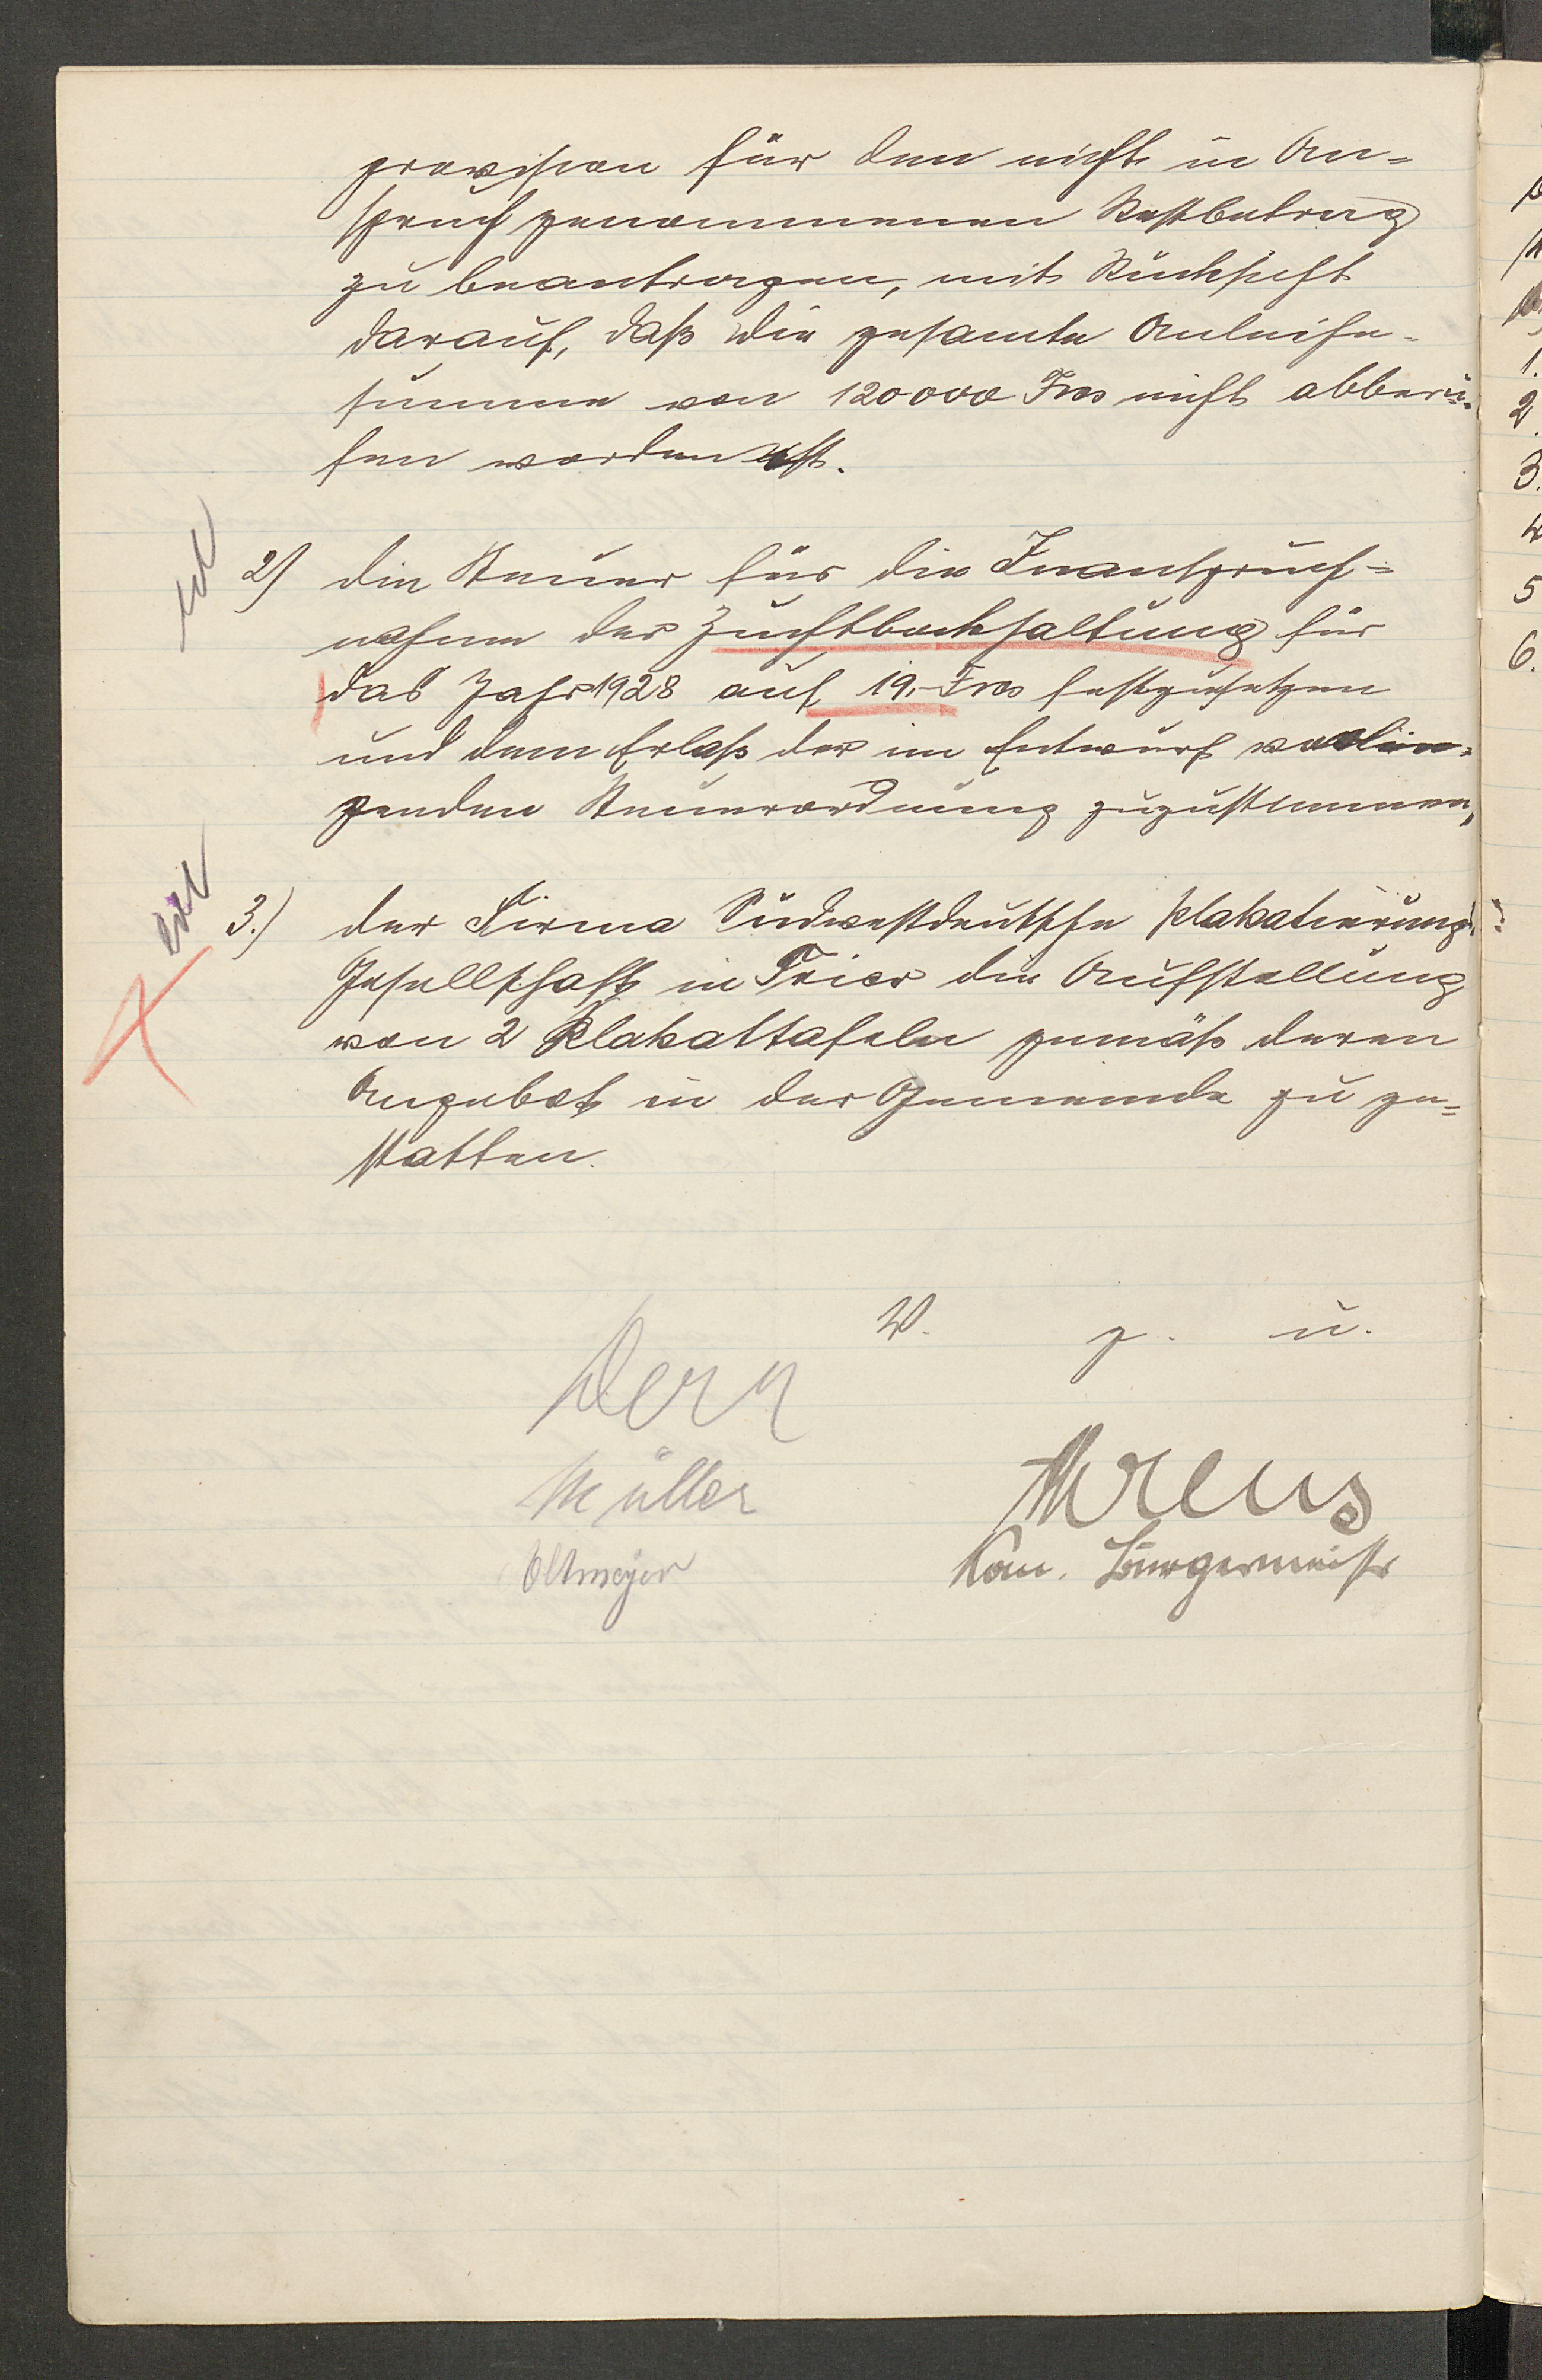 provision für den nicht in An-
spruch genommenen Restbetrag
zu beantragen, mit Rücksicht
darauf, daß die gesamte Anleihe-
summe von 120000 Frcs nicht abberu-
fen worden ist.
2) die Steuer für die Inanspruch-
nahme der Zuchtbockhaltung für
das Jahr 1928 auf 19.- Frcs festzusetzen
und dem Erlaß der im Entwurf vorlie-
genden Steuerordnung zuzustimmen,
3.) der Firma Südwestdeutsche Plakatierungs-
Gesellschaft in Trier die Aufstellung
von 2 Plakattafeln gemäß deren
Angebot in der Gemeinde zu ge-
statten.
W. g. u.
Dern
Müller
Ahrens
Oltmeyer
Kom. Bürgermeister
2.
3.
4
5
6.